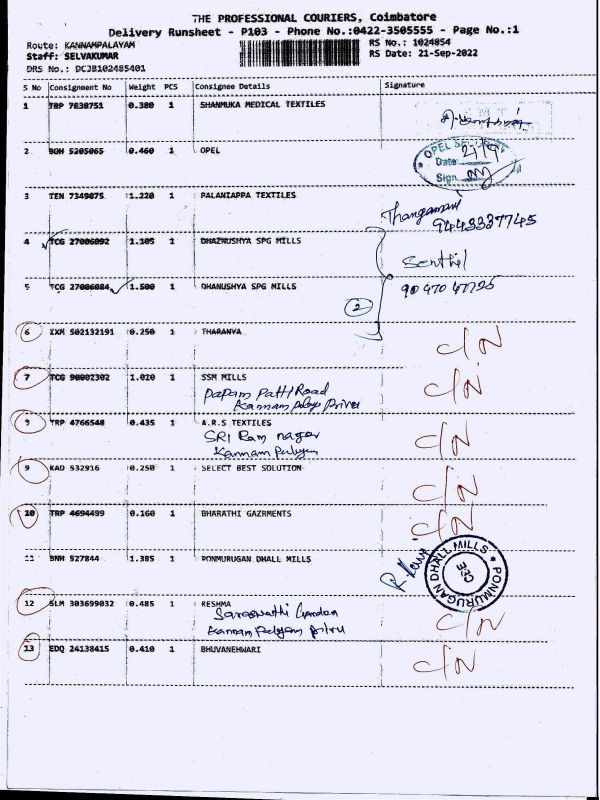 THE PROFESSIONAL COURIERS, Coimbatore
Delivery Runsheet - P103 - Phone No.:0422-3505555 - Page No.:1
Route: KANNAMPALAYAM
RS No.: 1024854
Staff: SELVAKUMAR
RS Date: 21-Sep-2022
DRS No.: DCJB102485401
S No Consignment No Weight PCS Consignee Details Signature
1 TRP 7838751 0.380 1 SHANMUKA MEDICAL TEXTILES
2 BOM 5205065 0.460 1 OPEL
OPEL
Date 21/9
Sign
3 TEN 7349075 1.220 1 PALANIAPPA TEXTILES
Thangamani
9443337745
4 TCG 27006092 1.105 1 DHAZNUSHYA SPG MILLS
Senthil
5 TCG 27006084 1.500 1 DHANUSHYA SPG MILLS
2
6 IXM 502132191 0.250 1 THARANYA
C/N
7 TCG 90002302 1.010 1 SSM MILLS
C/N
Papam Patti Road
TRP 4766548 0.435 1 A.R.S TEXTILES
C/N
SRI Ram nagar
9 KAD 532916 0.250 1 SELECT BEST SOLUTION
C/N
10 TRP 4694499 0.160 1 BHARATHI GAZRMENTS
C/N
11 BNH 527844 1.385 1 PONMURUGAN DHALL MILLS
PONMURUGAN DHALL MILLS
12 SLM 303699032 0.485 1 RESHMA
C/N
Saraswathi Garden
13 EDQ 24138415 0.410 1 BHUVANEHWARI
C/N